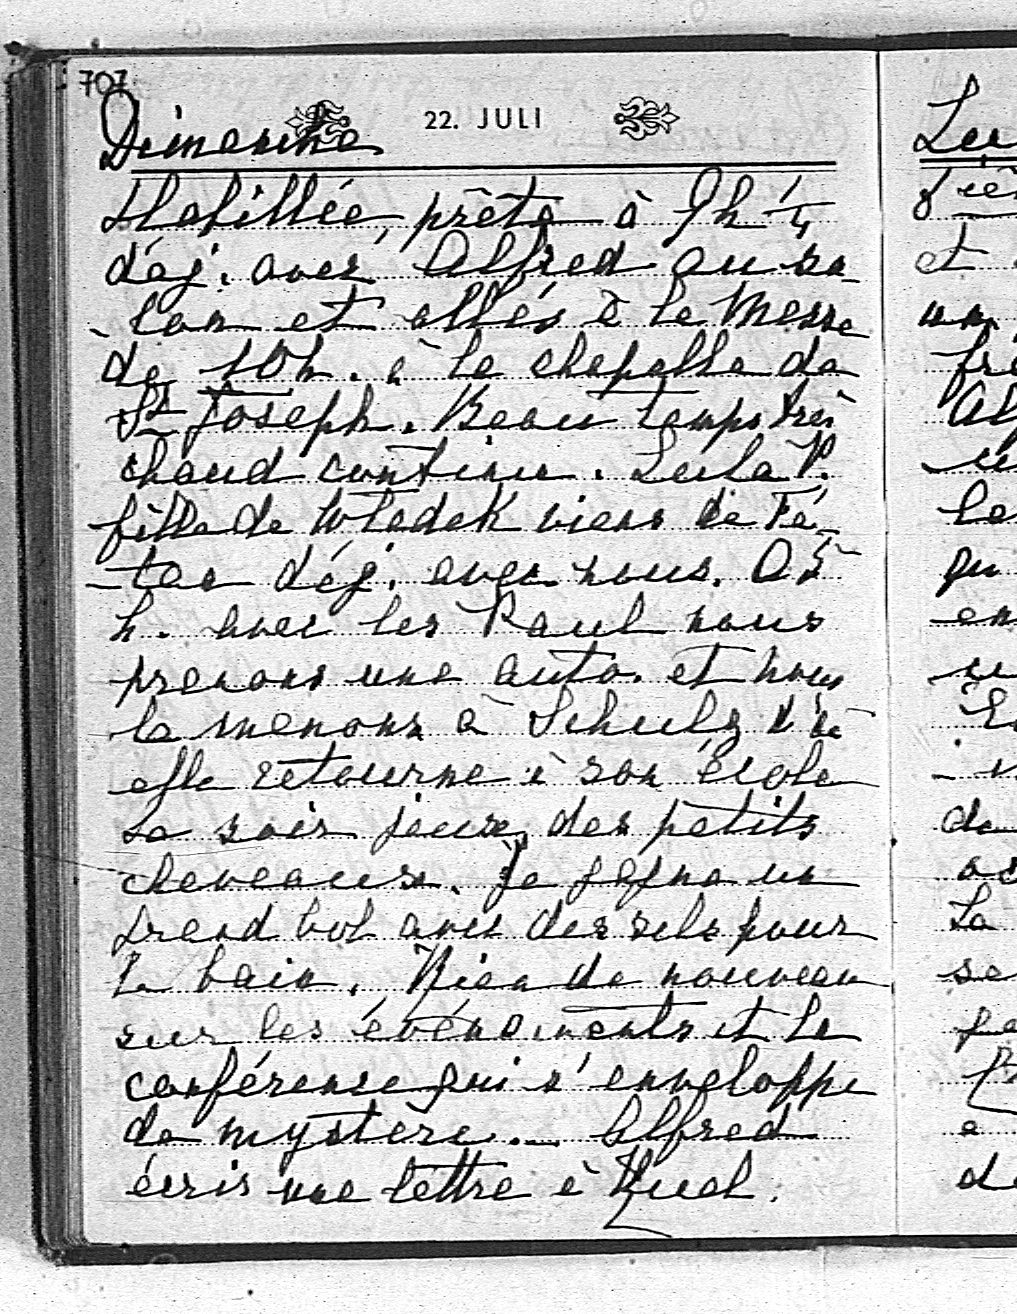 707
22. JULI
Dimanche
Habillée, prête à 9h ¼
déj. avec Alfred au sa-
lon et allés à la Messe
de 10h. à la chapelle de
St Joseph. Beau temps très
chaud continu. Leila P.
fille de Wladek viens de Fé-
tao déj. avec nous. A 5
h. avec les Paul nous
prenons une auto. et nous
la menons à Schulz d'où
elle retourne à son école
Le soir jeux des petits
cheveaux. Je gagne un
grand bol avec des sels pour
le bain. Rien de nouveau
sur les événements et la
conférence qui s'enveloppe
de mystère... Alfred
écris une lettre à